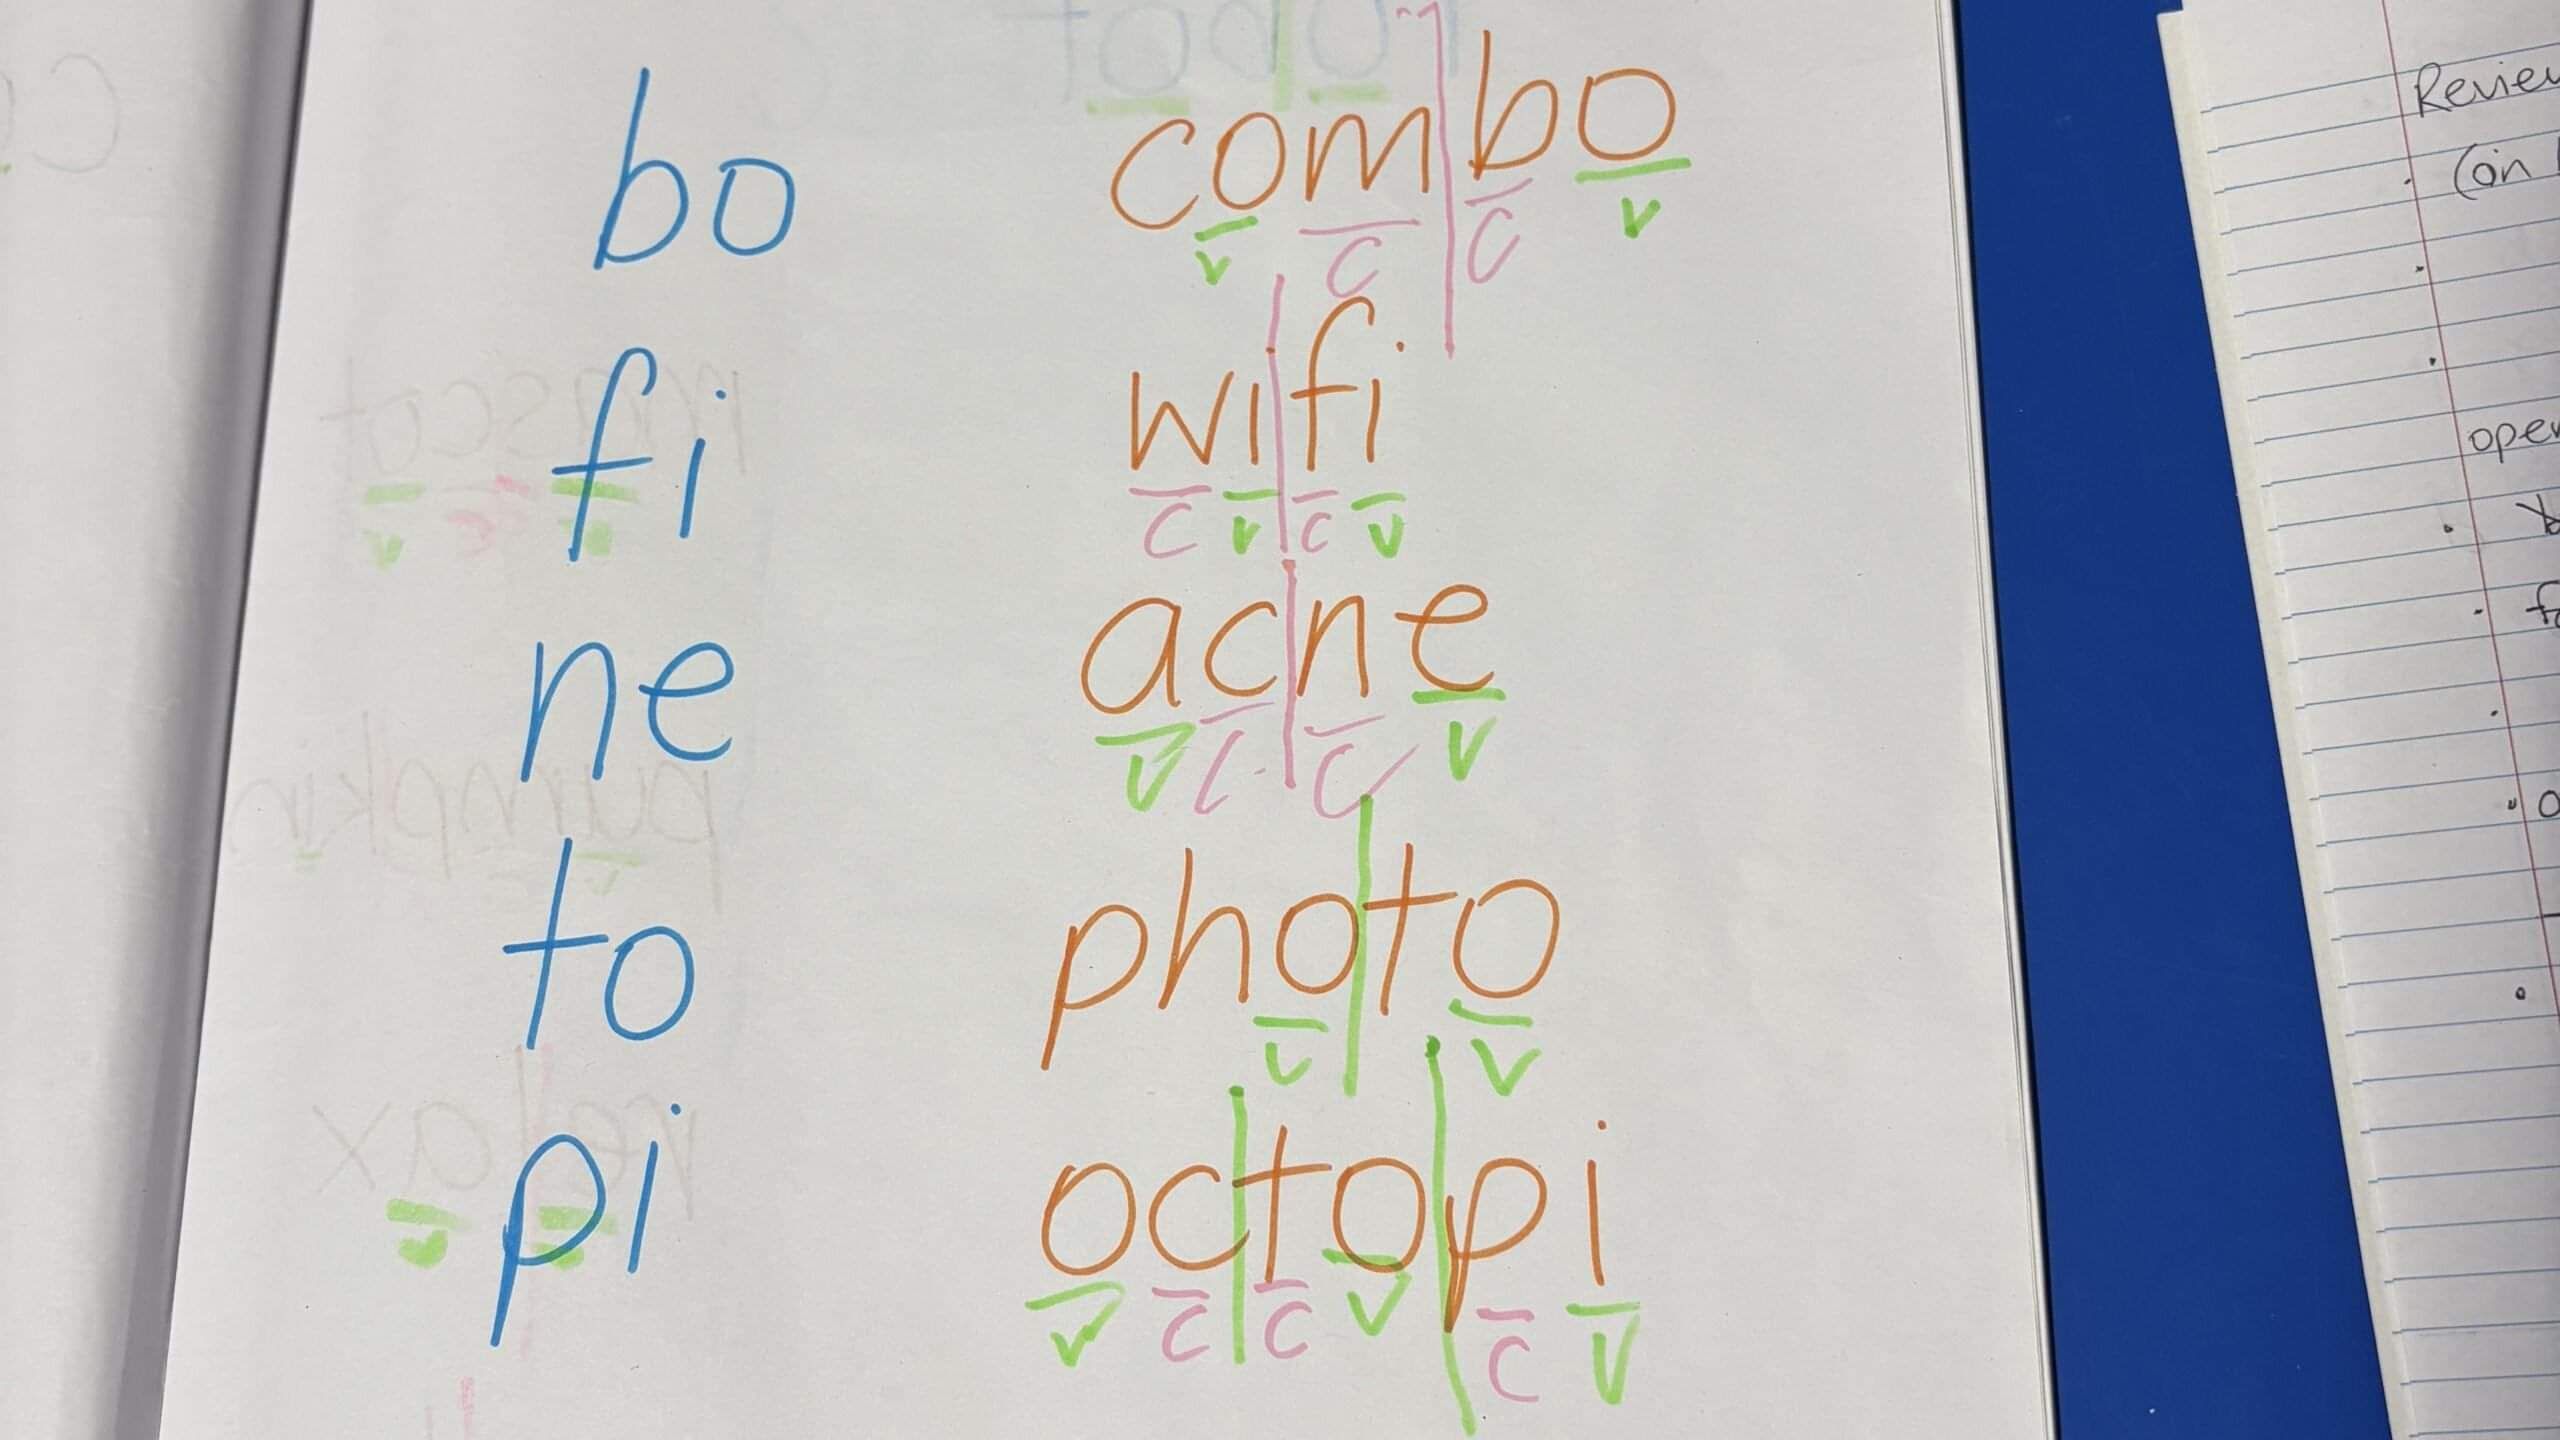 bo combo
v c c v
fi wifi
c v c v
ne acne
v c c v
to photo
v v
pi octopi
v c c v c v
(on